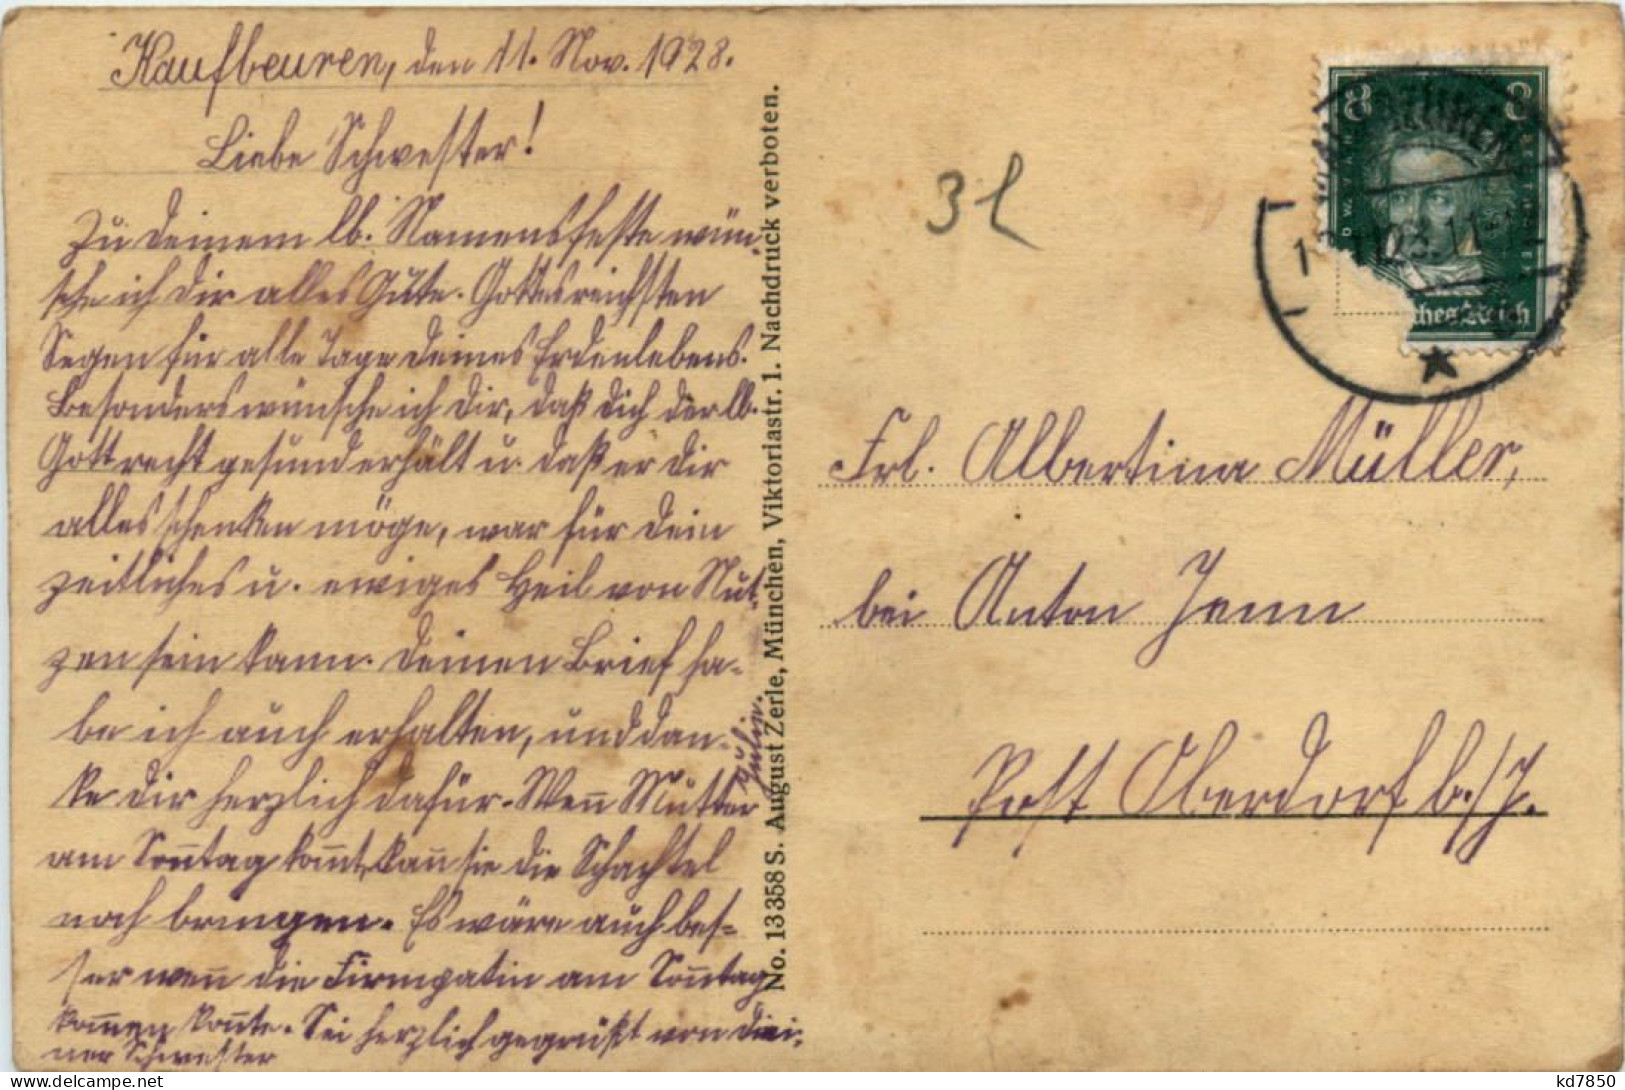 Kaufbeuren, den 11. Nov. 1928.
Liebe Schwester!
Zu Deinem lb. Namensfeste wün-
sche ich Dir alles Gute. Gottes reichsten
Segen für alle Tage Deines Erdenlebens.
Besonders wünsche ich Dir, daß Dich der lb.
Gott recht gesund erhält u. daß er Dir
alles schenken möge, was für Dein
zeitliches u. ewiges Heil von Nut-
zen sein kann. Deinen Brief ha-
be ich auch erhalten, und dan-
ke Dir herzlich dafür. Wen̄ Mutter
am Son̄tag kom̄t, kan̄ sie die Schachtel
noch bringen. Es wäre auch bes-
ser wen̄ die Firmpatin am Son̄tag
kom̄en kön̄te. Sei herzlich gegrüßt von Dei-
ner Schwester
Julie.
No. 13358 S. August Zerle, München, Viktoriastr. 1. Nachdruck verboten.
3 l
8 8
ches Reich
Frl. Albertina Müller,
bei Anton Jenn
Post Oberdorf b./J.
kd7850